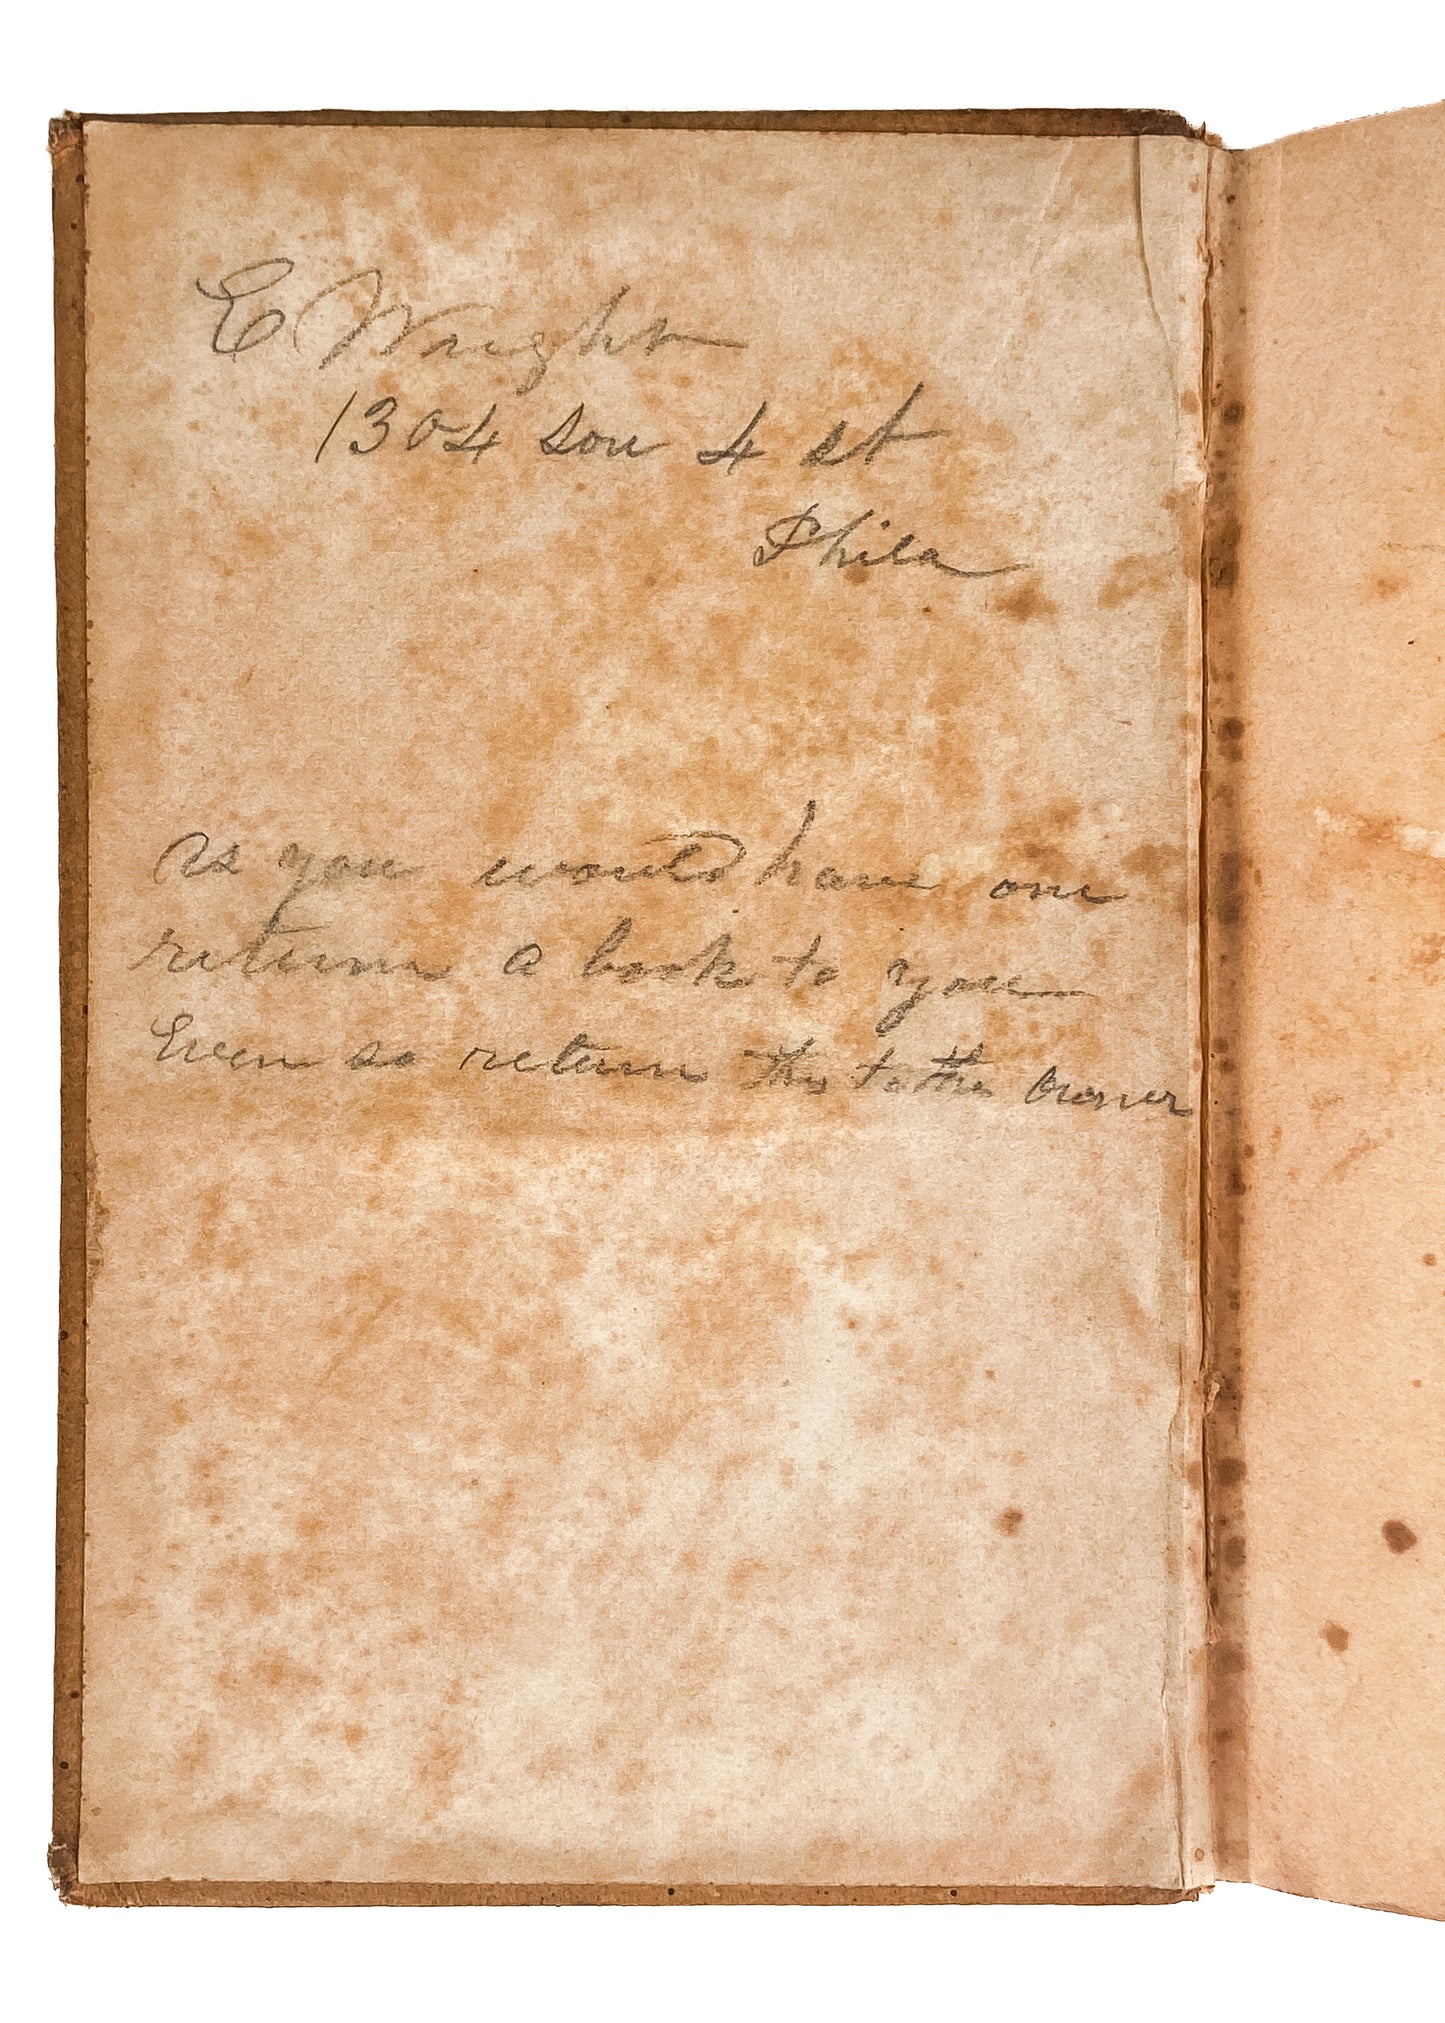 E Wright
1304 Sou 4 st
Phila
As you would have one
return a book to you
Even so return this to the owner